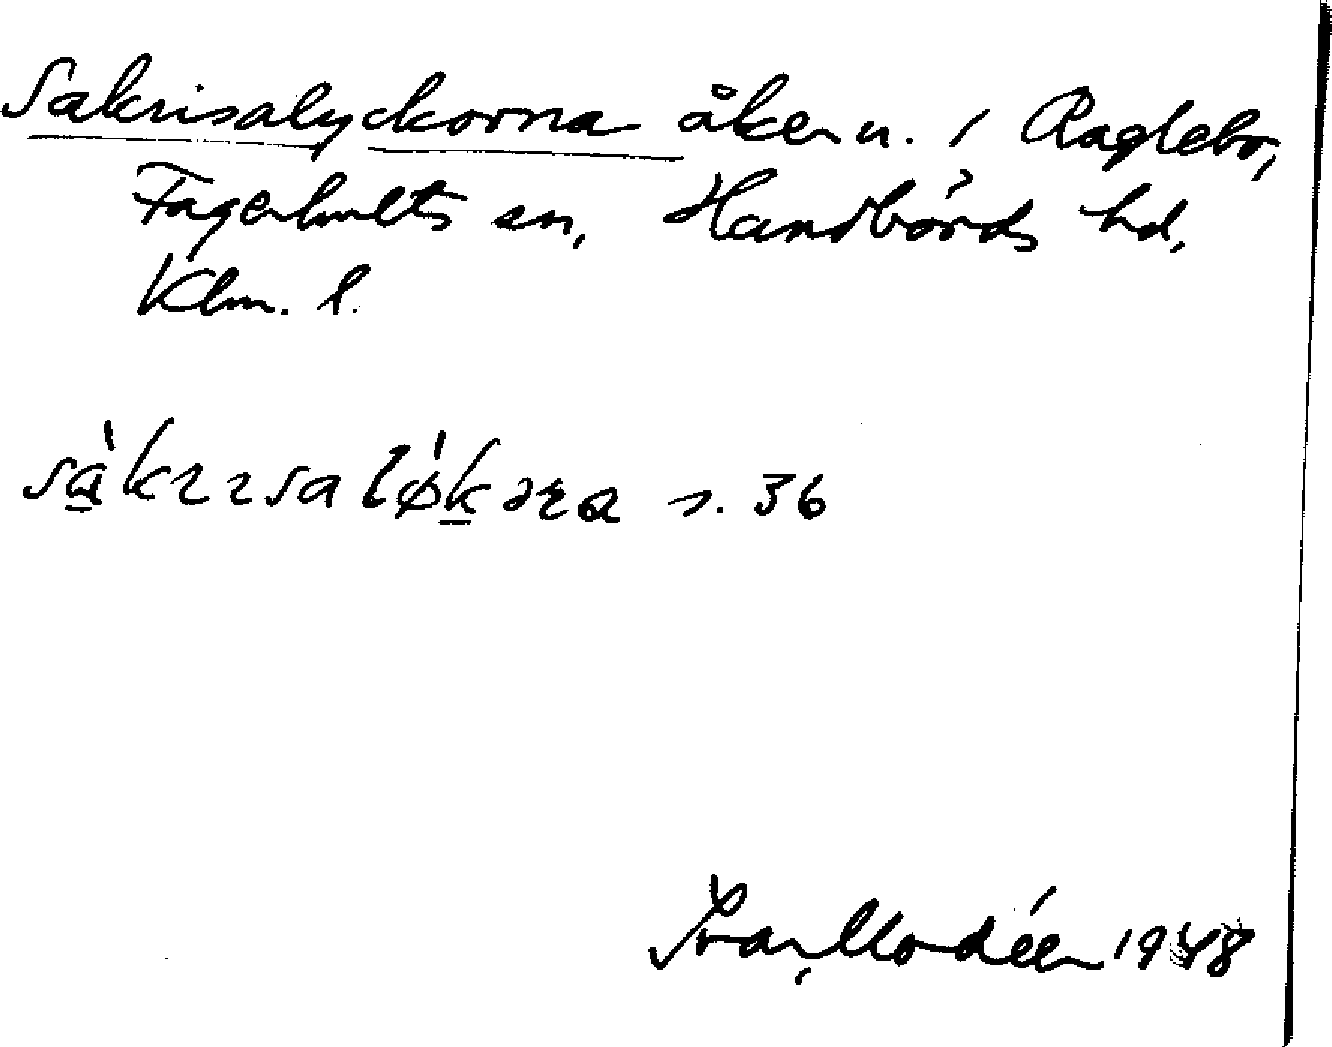 Sakrisalyckorna åker n. i Raglebo,
Fagerhults sn, Handbörds hd,
Klm. l.
s. 36
Ivar Modéer 1948